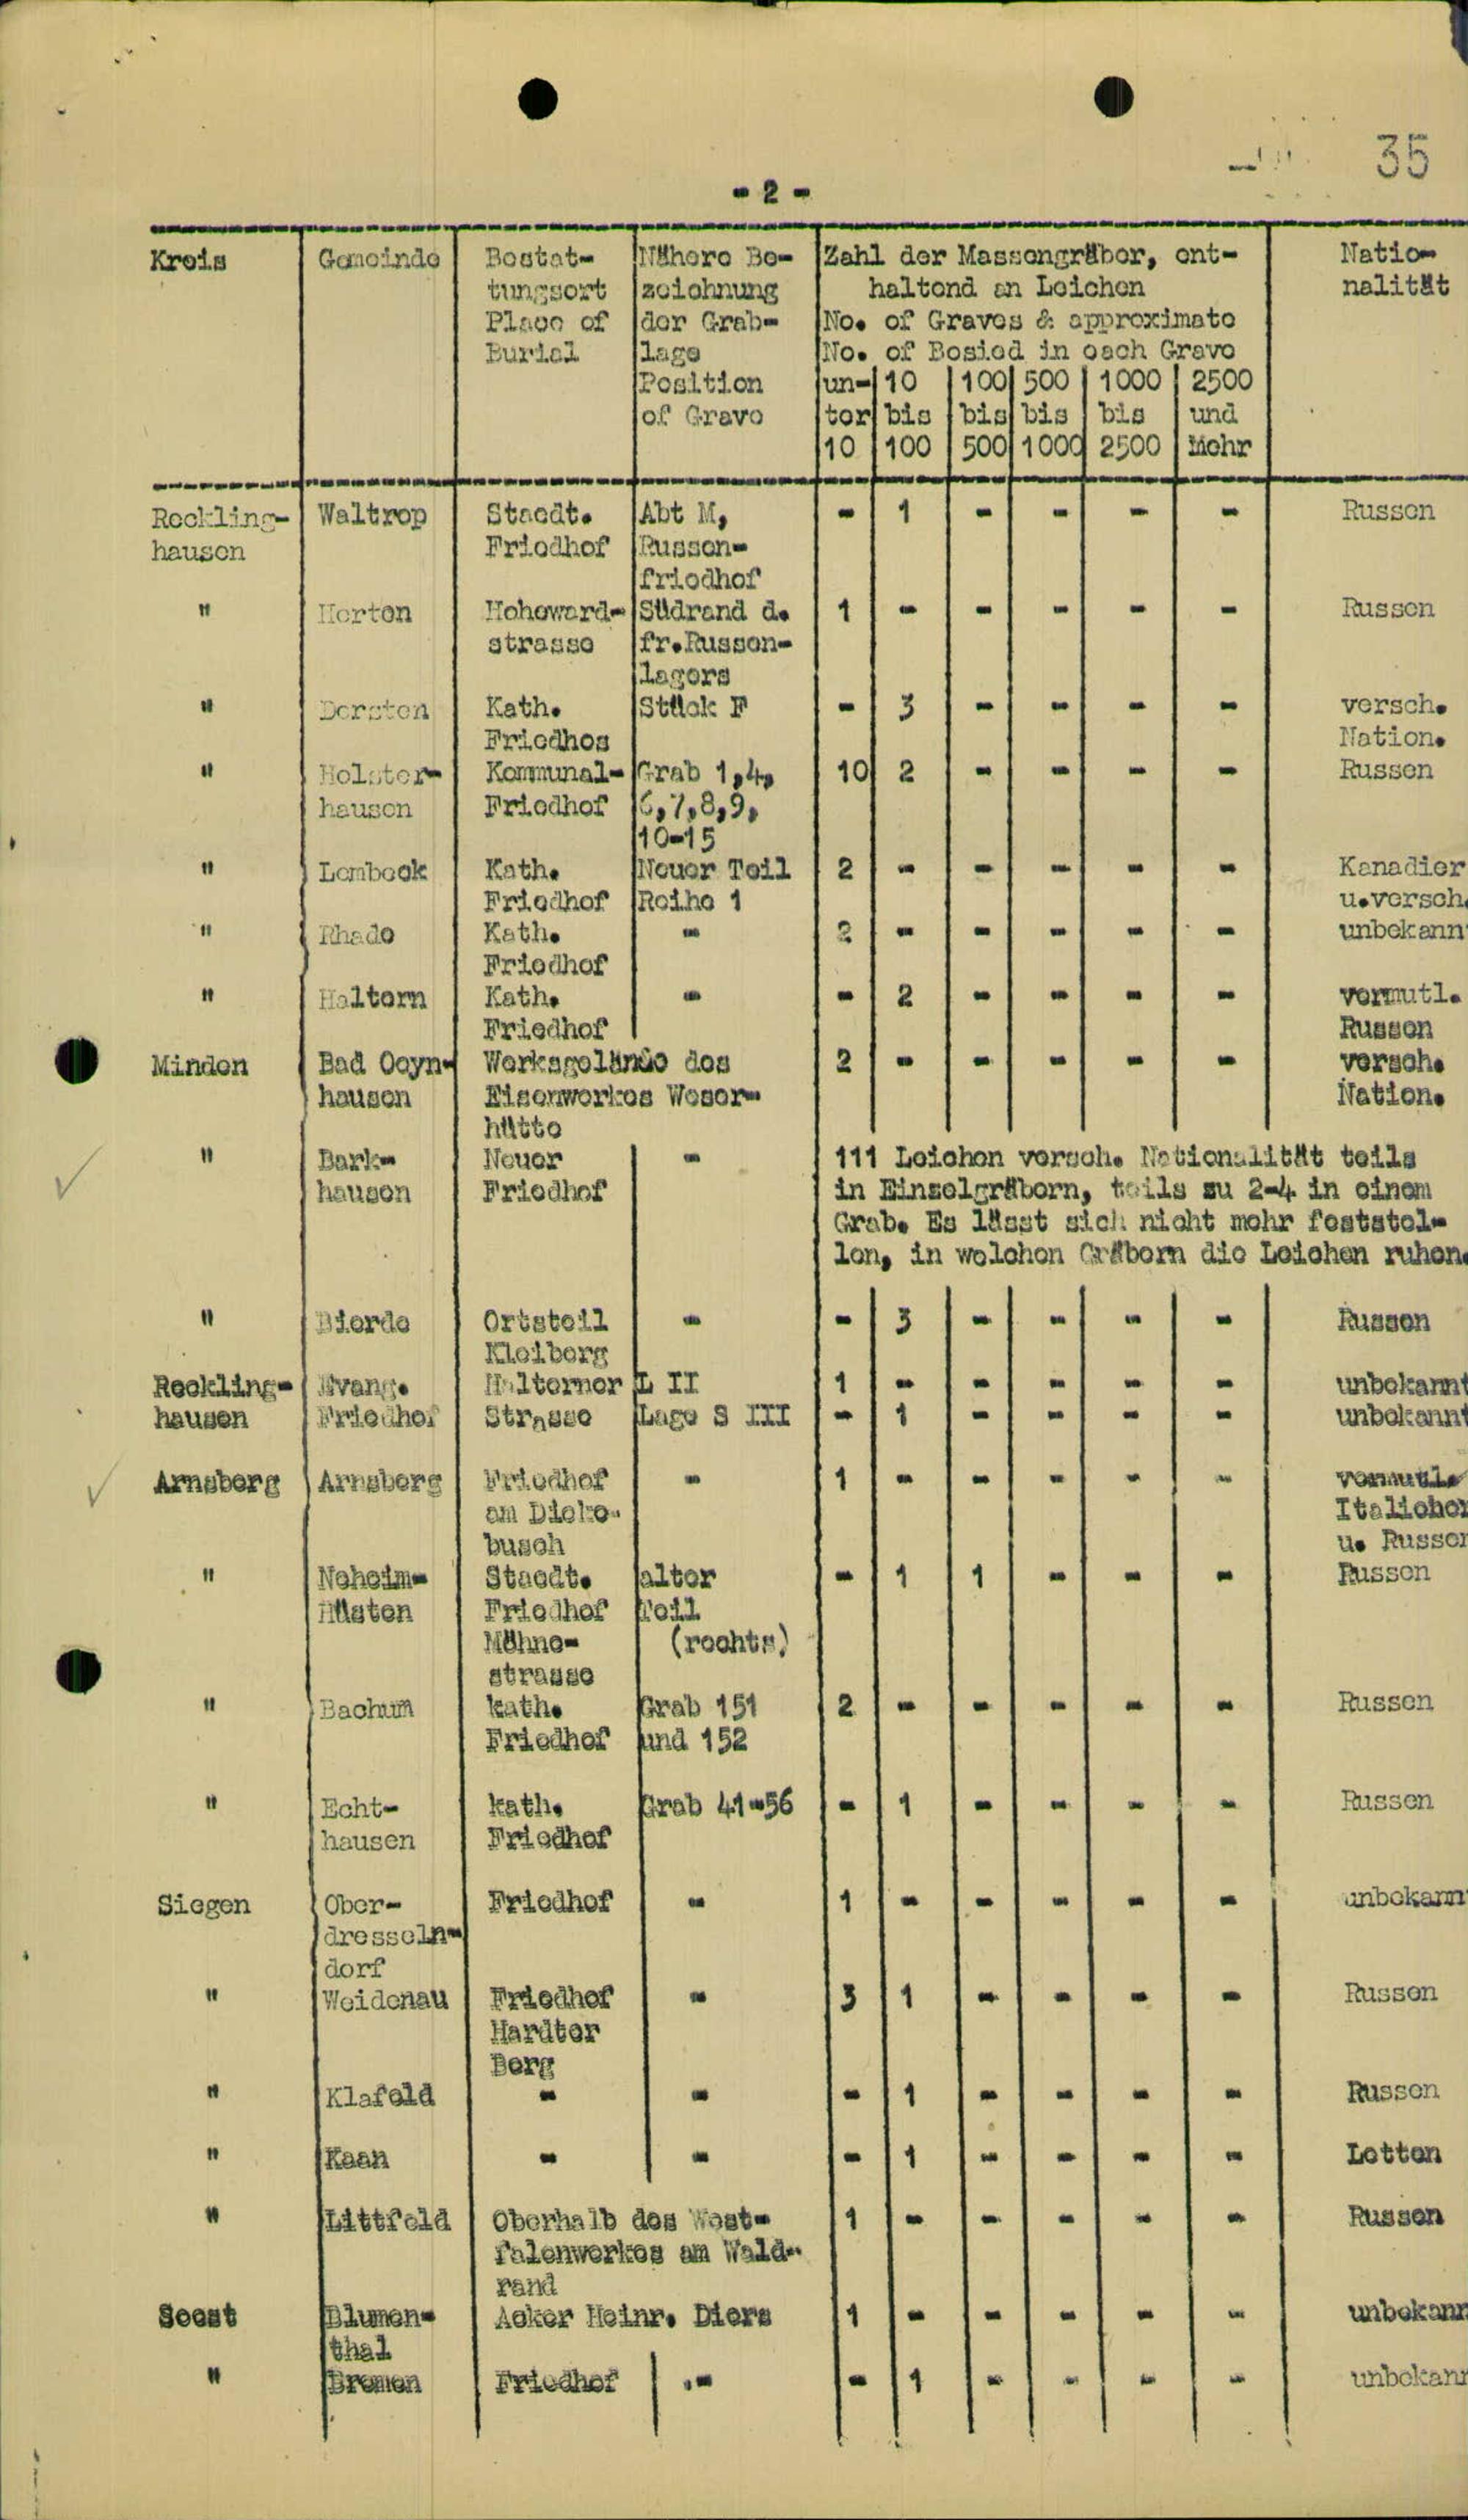 35
- 2 -
Kreis | Gemeinde | Bestat- | Nähere Be- | Zahl der Massengräber, ent- | Natio-
tungsort | zeichnung | haltend an Leichen | nalität
Place of | der Grab- | No. of Graves & approximate
Burial | lage | No. of Bosied in each Grave
Position | un- | 10 | 100 | 500 | 1000 | 2500
of Grave | ter | bis | bis | bis | bis | und
10 | 100 | 500 | 1000 | 2500 | Mehr
Reckling- | Waltrop | Staedt. | Abt M, | - | 1 | - | - | - | - | Russen
hausen | Friedhof | Russen-
friedhof
" | Herten | Hoheward- | Südrand d. | 1 | - | - | - | - | - | Russen
strasse | fr.Russen-
lagers
" | Dorsten | Kath. | Stück F | - | 3 | - | - | - | - | versch.
Friedhos | Nation.
" | Holster- | Kommunal- | Grab 1,4, | 10 | 2 | - | - | - | - | Russen
hausen | Friedhof | 6,7,8,9,
10-15
" | Lembeck | Kath. | Neuer Teil | 2 | - | - | - | - | - | Kanadier
Friedhof | Reihe 1 | u.versch.
" | Rhade | Kath. | - | 2 | - | - | - | - | - | unbekann
Friedhof
" | Haltern | Kath. | - | - | 2 | - | - | - | - | vermutl.
Friedhof | Russen
Minden | Bad Oeyn- | Werksgelände des | 2 | - | - | - | - | - | versch.
hausen | Eisenwerkes Weser- | Nation.
hütte
" | Bark- | Neuer | - | 111 Leichen versch. Nationalität teils
hausen | Friedhof | in Einzelgräbern, teils zu 2-4 in einem
Grab. Es lässt sich nicht mehr feststel-
len, in welchen Gräbern die Leichen ruhen.
" | Bierde | Ortsteil | - | - | 3 | - | - | - | - | Russen
Kleiberg
Reckling- | Evang. | Halterner | L II | 1 | - | - | - | - | - | unbekannt
hausen | Friedhof | Strasse | Lage S III | - | 1 | - | - | - | - | unbekannt
Arnsberg | Arnsberg | Friedhof | - | 1 | - | - | - | - | - | vermutl.
am Dicke- | Italiener
busch | u. Russen
" | Neheim- | Staedt. | alter | - | 1 | 1 | - | - | - | Russen
Hüsten | Friedhof | Teil
Möhne- | (rechts)
strasse
" | Bachum | kath. | Grab 151 | 2 | - | - | - | - | - | Russen
Friedhof | und 152
" | Echt- | kath. | Grab 41-56 | - | 1 | - | - | - | - | Russen
hausen | Friedhof
Siegen | Ober- | Friedhof | - | 1 | - | - | - | - | - | unbekann
dresseln-
dorf
" | Weidenau | Friedhof | - | 3 | 1 | - | - | - | - | Russen
Hardter
Berg
" | Klafeld | - | - | - | 1 | - | - | - | - | Russen
" | Kaan | - | - | - | 1 | - | - | - | - | Letten
" | Littfeld | Oberhalb des West- | 1 | - | - | - | - | - | Russen
falenwerkes am Wald-
rand
Soest | Blumen- | Acker Heinr. Diers | 1 | - | - | - | - | - | unbekann
thal
" | Bremen | Friedhof | - | - | 1 | - | - | - | - | unbekann